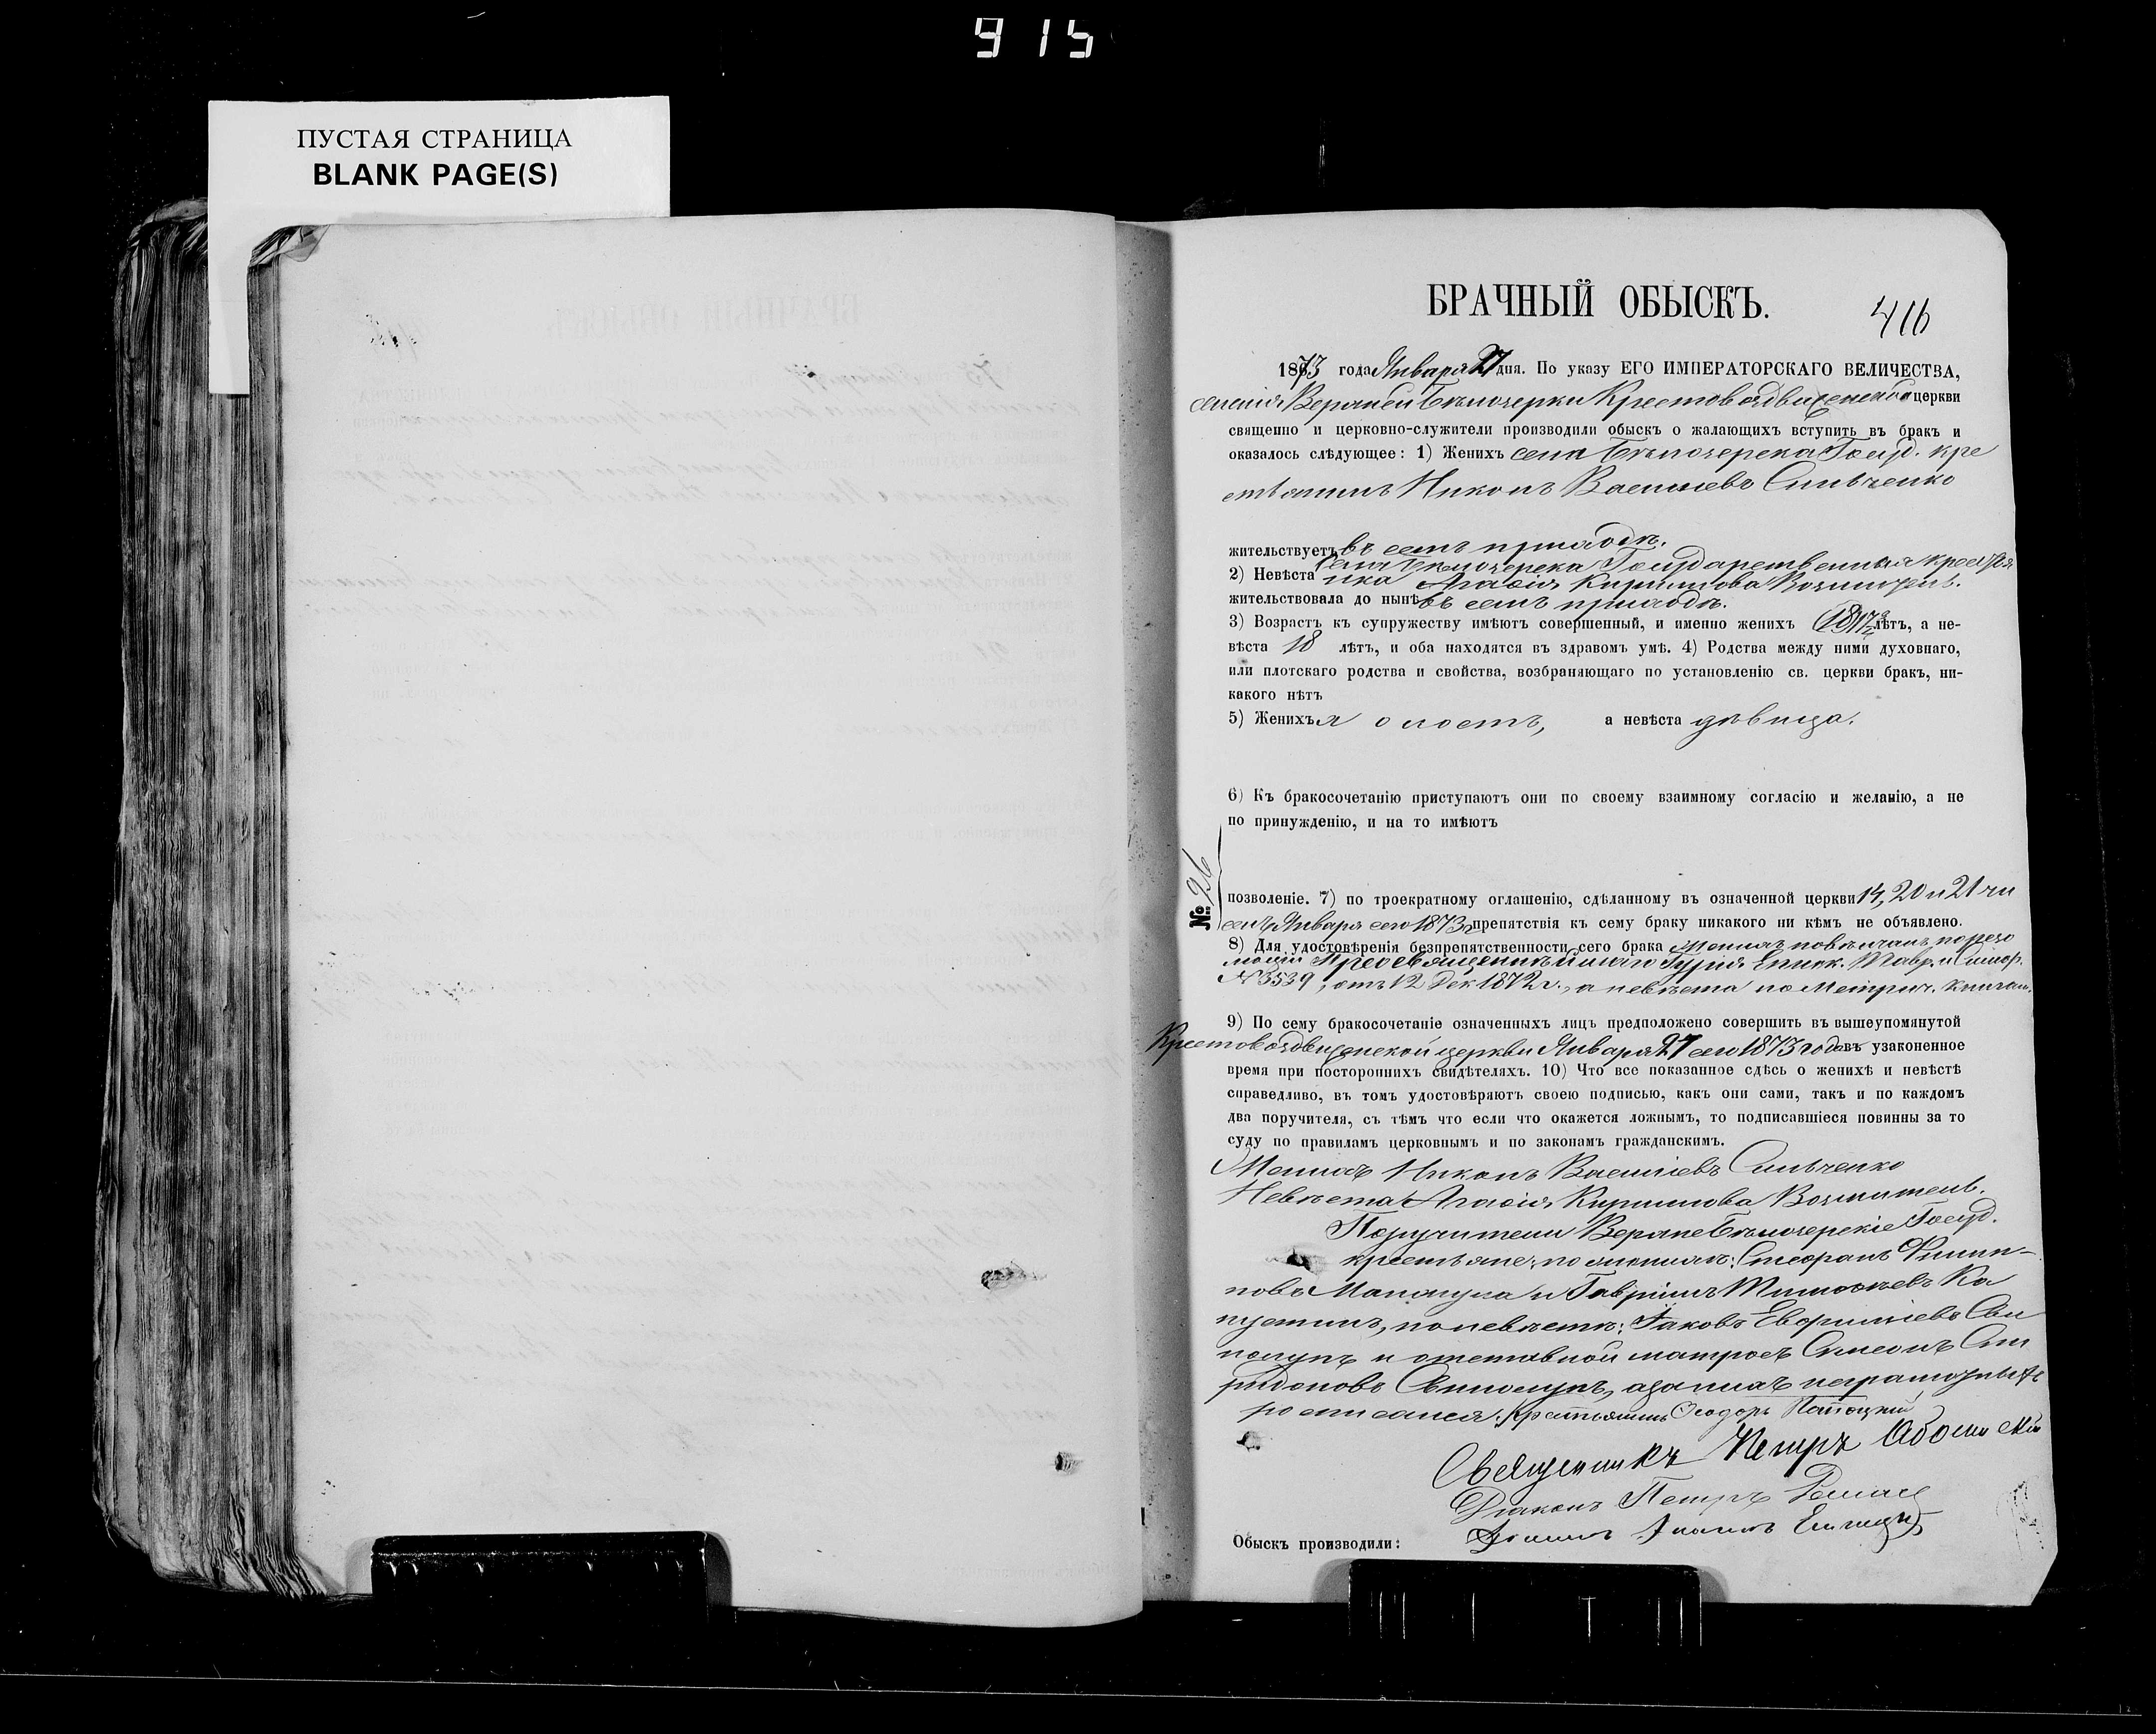 915
ПУСТАЯ СТРАНИЦА
BLANK PAGE(S)
БРАЧНЫЙ ОБЫСКЪ.
416
1873 года Января 27 дня. По указу ЕГО ИМПЕРАТОРСКАГО ВЕЛИЧЕСТВА,
селенія Верхней Бѣлозерки Крестовоздвиженской церкви
священно и церковно-служители производили обыскъ о жалающихъ вступить въ бракъ и
оказалось слѣдующее: 1) Женихъ села Бѣлозерска Госуд. кре
стьянинъ Никонъ Васильевъ Сильченко
жительствуетъ въ семъ приходѣ.
села Бѣлозерска Государственная крестья
2) Невѣста нка Агафія Кириллова
жительствовала до нынѣ въ семъ приходѣ.
3) Возрастъ къ супружеству имѣютъ совершенный, и именно женихъ лѣтъ, а не-
вѣста 18 лѣтъ, и оба находятся въ здравомъ умѣ. 4) Родства между ними духовнаго,
или плотскаго родства и свойства, возбраняющаго по установленію св. церкви бракъ, ни-
какого нѣтъ
5) Женихъ холостъ, а невѣста дѣвица.
6) Къ бракосочетанію приступаютъ они по своему взаимному согласію и желанію, а не
по принужденію, и на то имѣютъ
№ 26
позволеніе. 7) по троекратному оглашенію, сдѣланному въ означенной церкви 14, 20 и 21 чи
селъ Января сего 1873 г. препятствія къ сему браку никакого ни кѣмъ не объявлено.
8) Для удостовѣренія безпрепятственности сего брака Женихъ повѣнчанъ по резо
люціи Преосвященнѣйшаго Гурія Еписк. Тавр. и Симфер.
№ 3539, отъ 12 Дек 1872 г., а невѣста по Метрич. книгам.
9) По сему бракосочетаніе означенныхъ лицъ предположено совершить въ вышеупомянутой
Крестовоздвиженской церкви Января 27 сего 1873 года въ узаконенное
время при постороннихъ свидѣтеляхъ. 10) Что все показанное сдѣсь о женихѣ и невѣстѣ
справедливо, въ томъ удостовѣряютъ своею подписью, какъ они сами, такъ и по каждомъ
два поручителя, съ тѣмъ что если что окажется ложнымъ, то подписавшіеся повинны за то
суду по правиламъ церковнымъ и по законамъ гражданскимъ.
Женихъ Никонъ Васильевъ Сильченко
Невѣста Агафія Кириллова
Поручители Верхне Бѣлозерскіе Госуд.
крестьяне: по женихѣ: Стефанъ Филип-
повъ и Гавріилъ Тимофѣевъ Ка
пустинъ, по невѣстѣ: Іаковъ Сви
полупъ и отставной матросъ Симеонъ Спи
ридоновъ Свиполупъ, а за нихъ неграмотныхъ
росписался. Крестьянинъ Ѳеодоръ
Священникъ Петръ
Діаконъ Петръ
Обыскъ производили: